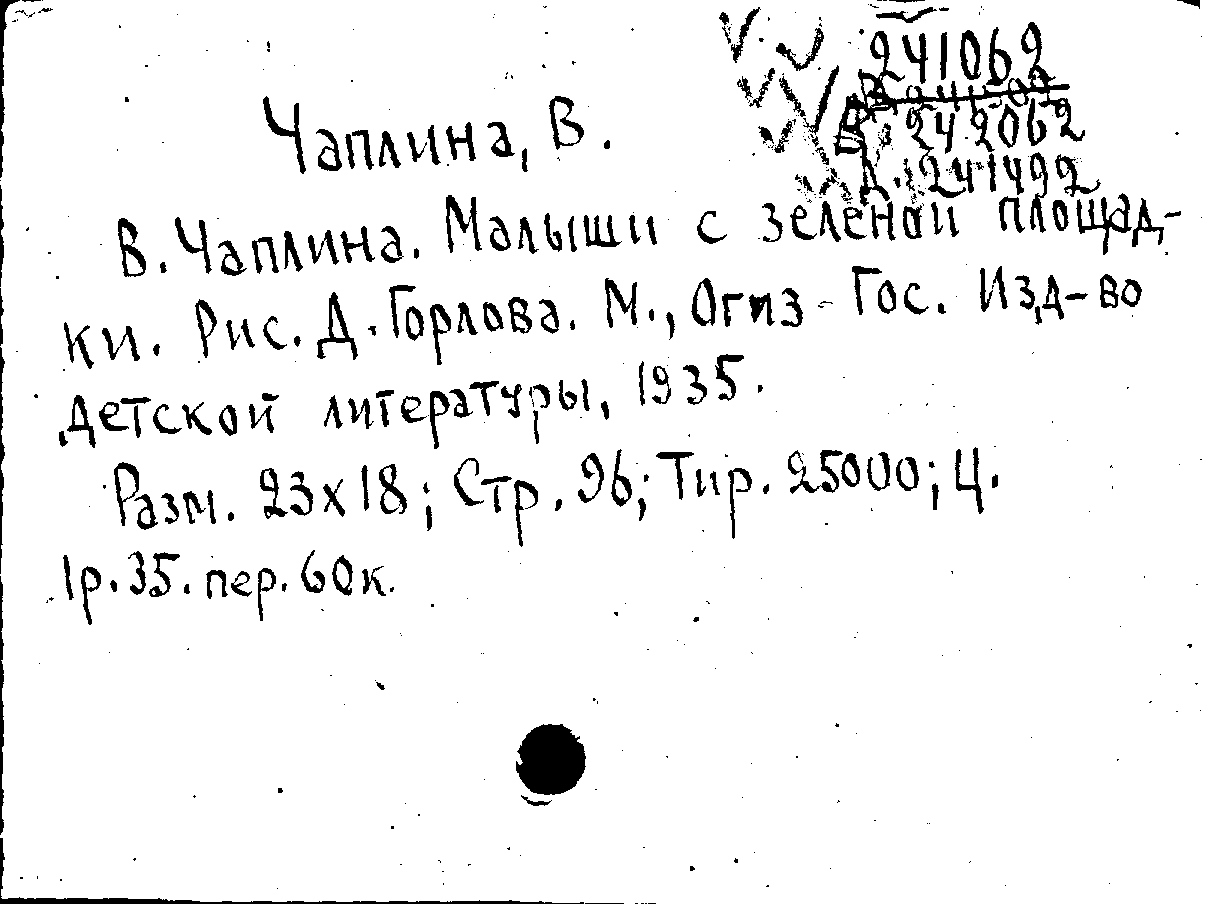 241062
В 242062
Д. 1241492
Чаплина, В.
В. Чаплина. Малыши с зеленой площад-
ки. Рис. Д. Горлова. М., Огиз - Гос. Изд-во
детской литературы, 1935.
Разм. 23х18; Стр. 96; Тир. 25000; Ц.
1р.35. пер. 60к.